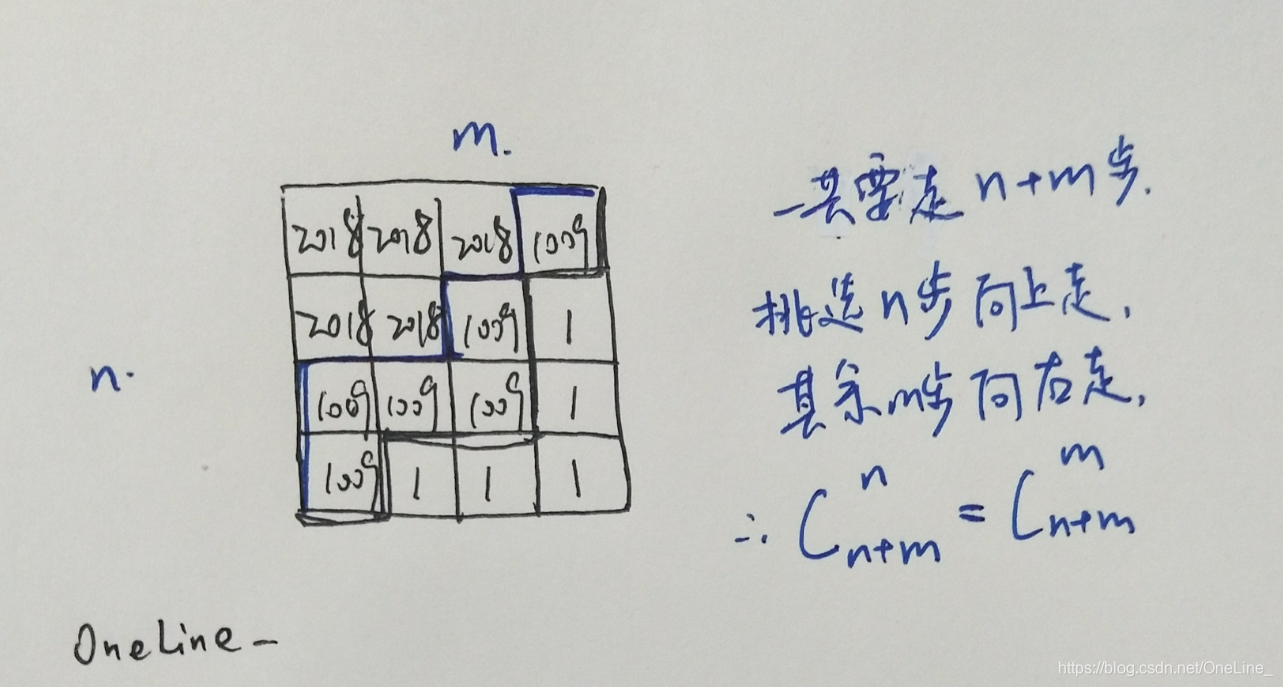 m.
n.
2018 2018 2018 1009
2018 2018 1009 1
1009 1009 1009 1
1009 1 1 1
一共要走 n+m步.
挑选 n步向上走,
其余m步向右走,
∴ C_{n+m}^{n} = C_{n+m}^{m}
OneLine_
https://blog.csdn.net/OneLine_